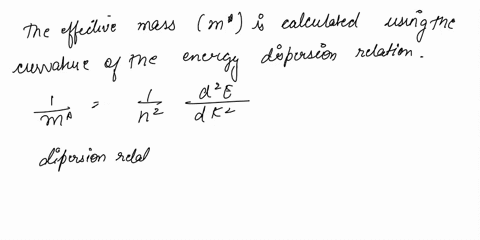 The effective mass (m*) is calculated using the
curvature of the energy dispersion relation.
1/m* = 1/ħ² d²E/dK²
dispersion rela